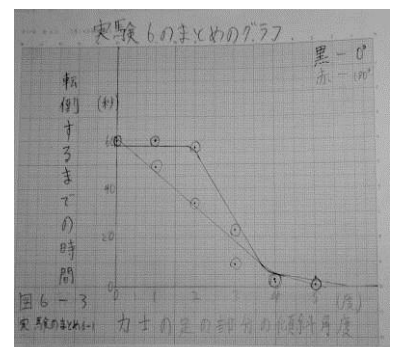 実験6のまとめのグラフ
黒 - 0°
赤 - 180°
転倒するまでの時間
(秒)
60
40
20
0
0 1 2 3 4 5 (度)
図6-3
力士の足の部分の傾斜角度